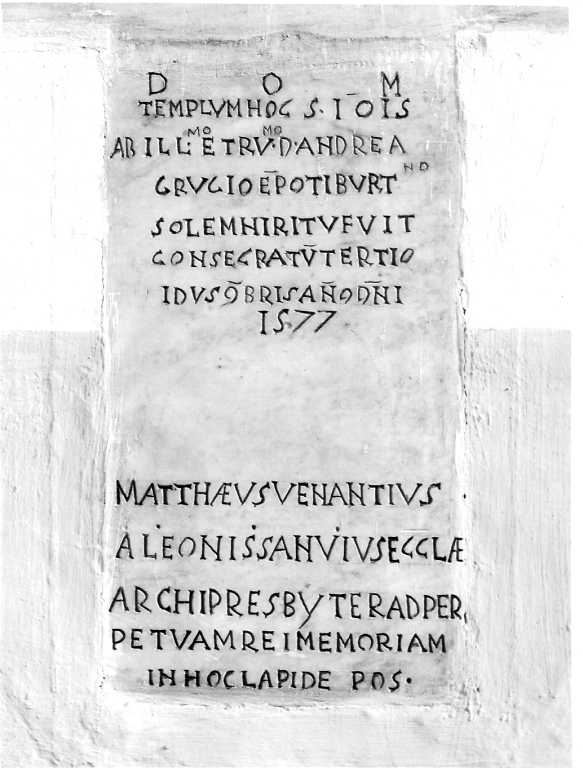 D O M
TEMPLVM HOC S. IŌIS
AB ILL:MO E TRV:MO D. ANDREA
CRVCIO EP̄O TIBVRTND
SOLEMNI RITV FVIT
CONSECRATV̄ TERTIO
IDVS 9̄BRIS AN̄O DN̄I
1577
MATTHÆVS VENANTIVS
A LEONISSA HVIVS ECCLÆ
ARCHIPRESBYTER AD PER
PETVAM REI MEMORIAM
IN HOC LAPIDE POS.